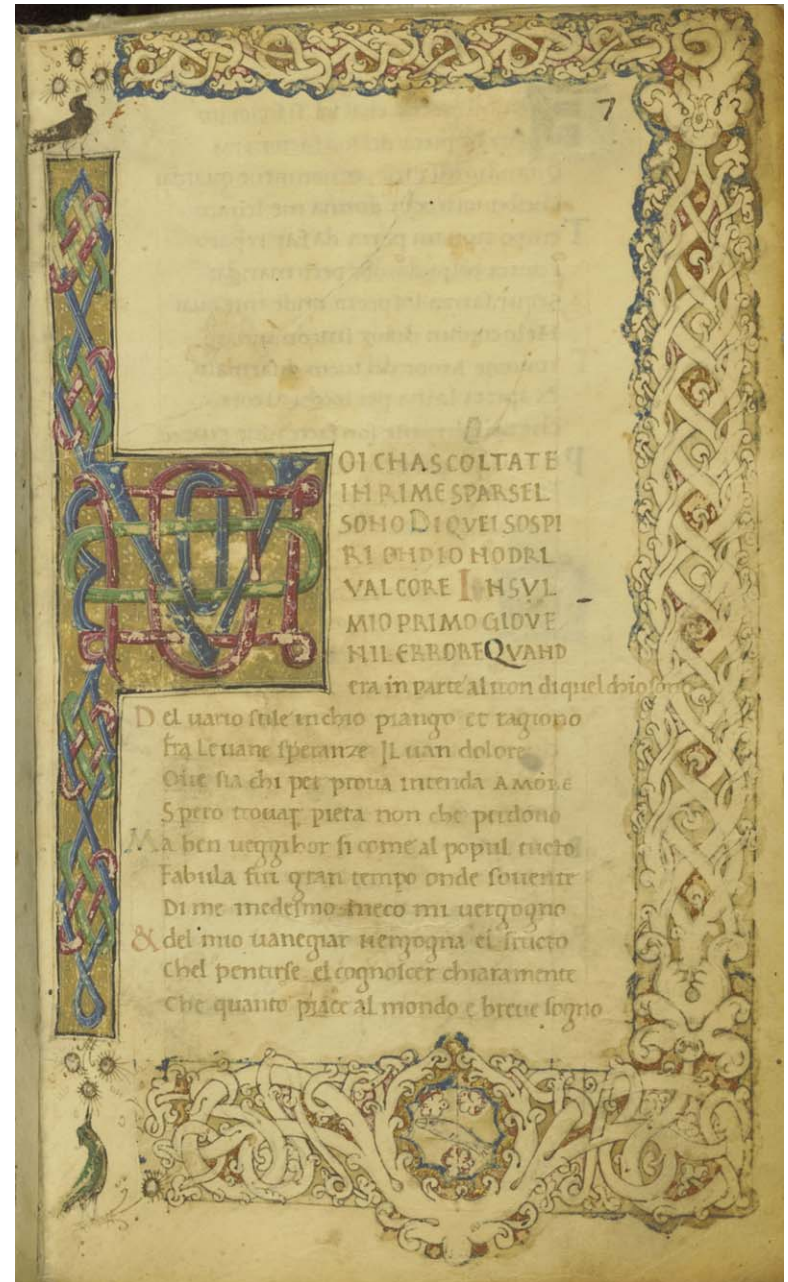 7
VOI CHASCOLTATE
IN RIME SPARSE L
SONO DI QVEI SOSPI
RI ONDIO NODRI
VAL CORE INSVL
MIO PRIMO GIOVE
NIL ERRORE QVAND
era in parte altron di quel chio sono
Del uario stile in chio piango et ragiono
fra Le uane speranze IL uan dolore
Oue sia chi per proua intenda AMORE
Spero trouar pieta non che perdono
Ma ben ueggihor si come al popul tucto
fabula fui gran tempo onde souente
Di me medesmo meco mi uergogno
& del mio uanegiar uergogna el fructo
Chel pentirse el cognoscer chiaramente
Che quanto piace al mondo e breue sogno